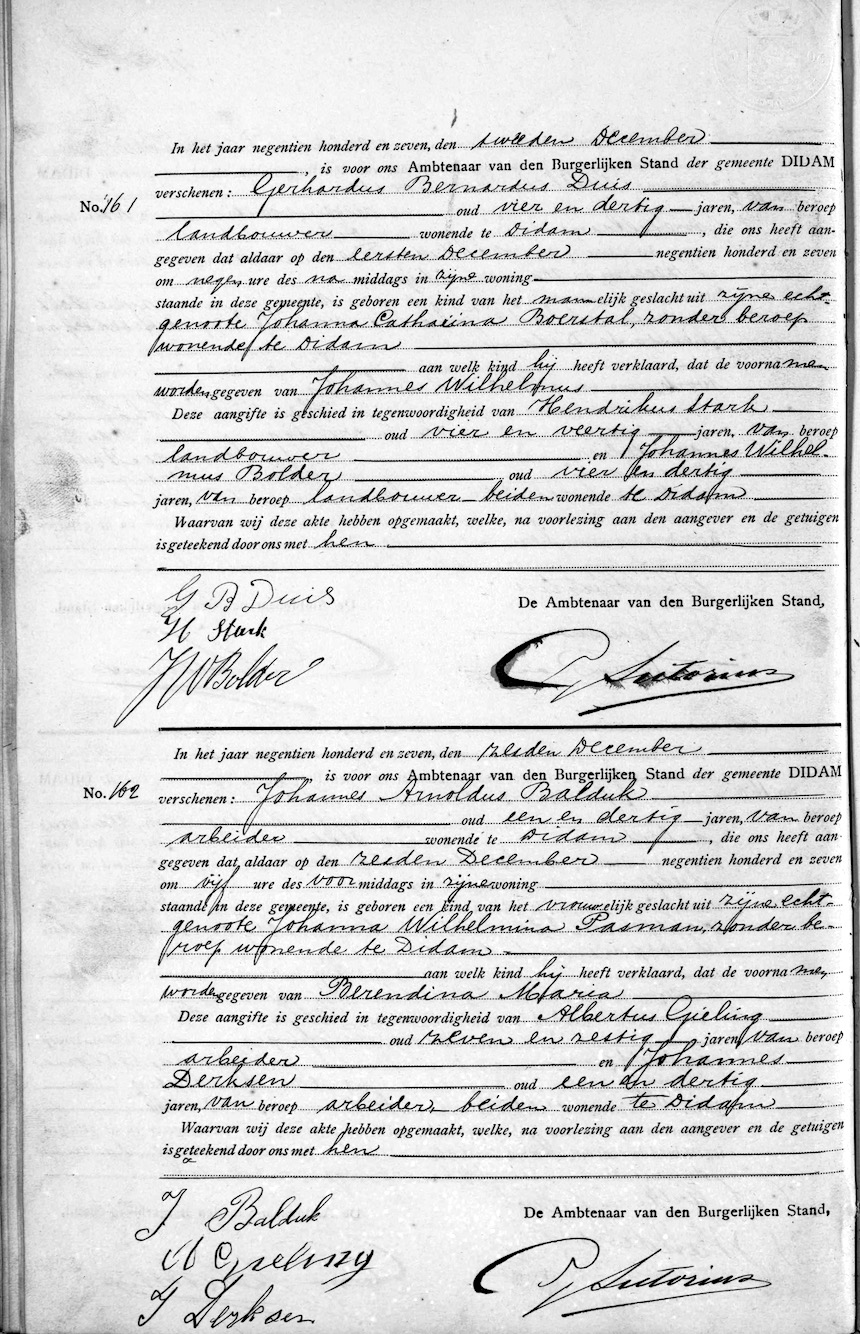 In het jaar negentien honderd en zeven, den tweeden December
, is voor ons Ambtenaar van den Burgerlijken Stand der gemeente DIDAM
No. 161 verschenen: Gerhardus Bernardus Duis
oud vier en dertig jaren, van beroep
landbouwer wonende te Didam , die ons heeft aan-
gegeven dat aldaar op den eersten December negentien honderd en zeven
om negen ure des na middags in zijne woning
staande in deze gemeente, is geboren een kind van het mannelijk geslacht uit zijne echt-
genoote Johanna Catharina Boerstal, zonder beroep
wonende te Didam
aan welk kind hij heeft verklaard, dat de voornamen
worden gegeven van Johannes Wilhelmus
Deze aangifte is geschied in tegenwoordigheid van Hendrikus Stark
oud vier en veertig jaren, van beroep
landbouwer en Johannes Wilhel-
mus Bolder oud vier en dertig
jaren, van beroep landbouwer beiden wonende te Didam
Waarvan wij deze akte hebben opgemaakt, welke, na voorlezing aan den aangever en de getuigen
is geteekend door ons met hen
G B Duis
De Ambtenaar van den Burgerlijken Stand,
H Stark
J W Bolder
Sutorius
In het jaar negentien honderd en zeven, den zesden December
, is voor ons Ambtenaar van den Burgerlijken Stand der gemeente DIDAM
No. 162 verschenen: Johannes Arnoldus Balduk
oud een en dertig jaren, van beroep
arbeider wonende te Didam , die ons heeft aan-
gegeven dat aldaar op den zesden December negentien honderd en zeven
om vijf ure des voor middags in zijne woning
staande in deze gemeente, is geboren een kind van het vrouwelijk geslacht uit zijne echt-
genoote Johanna Wilhelmina Pasman, zonder be-
roep wonende te Didam
aan welk kind hij heeft verklaard, dat de voornamen
worden gegeven van Berendina Maria
Deze aangifte is geschied in tegenwoordigheid van Albertus Gieling
oud zeven en zestig jaren, van beroep
arbeider en Johannes
Derksen oud een en dertig
jaren, van beroep arbeider, beiden wonende te Didam
Waarvan wij deze akte hebben opgemaakt, welke, na voorlezing aan den aangever en de getuigen
is geteekend door ons met hen
J Balduk
De Ambtenaar van den Burgerlijken Stand,
A Gieling
Sutorius
J Derksen